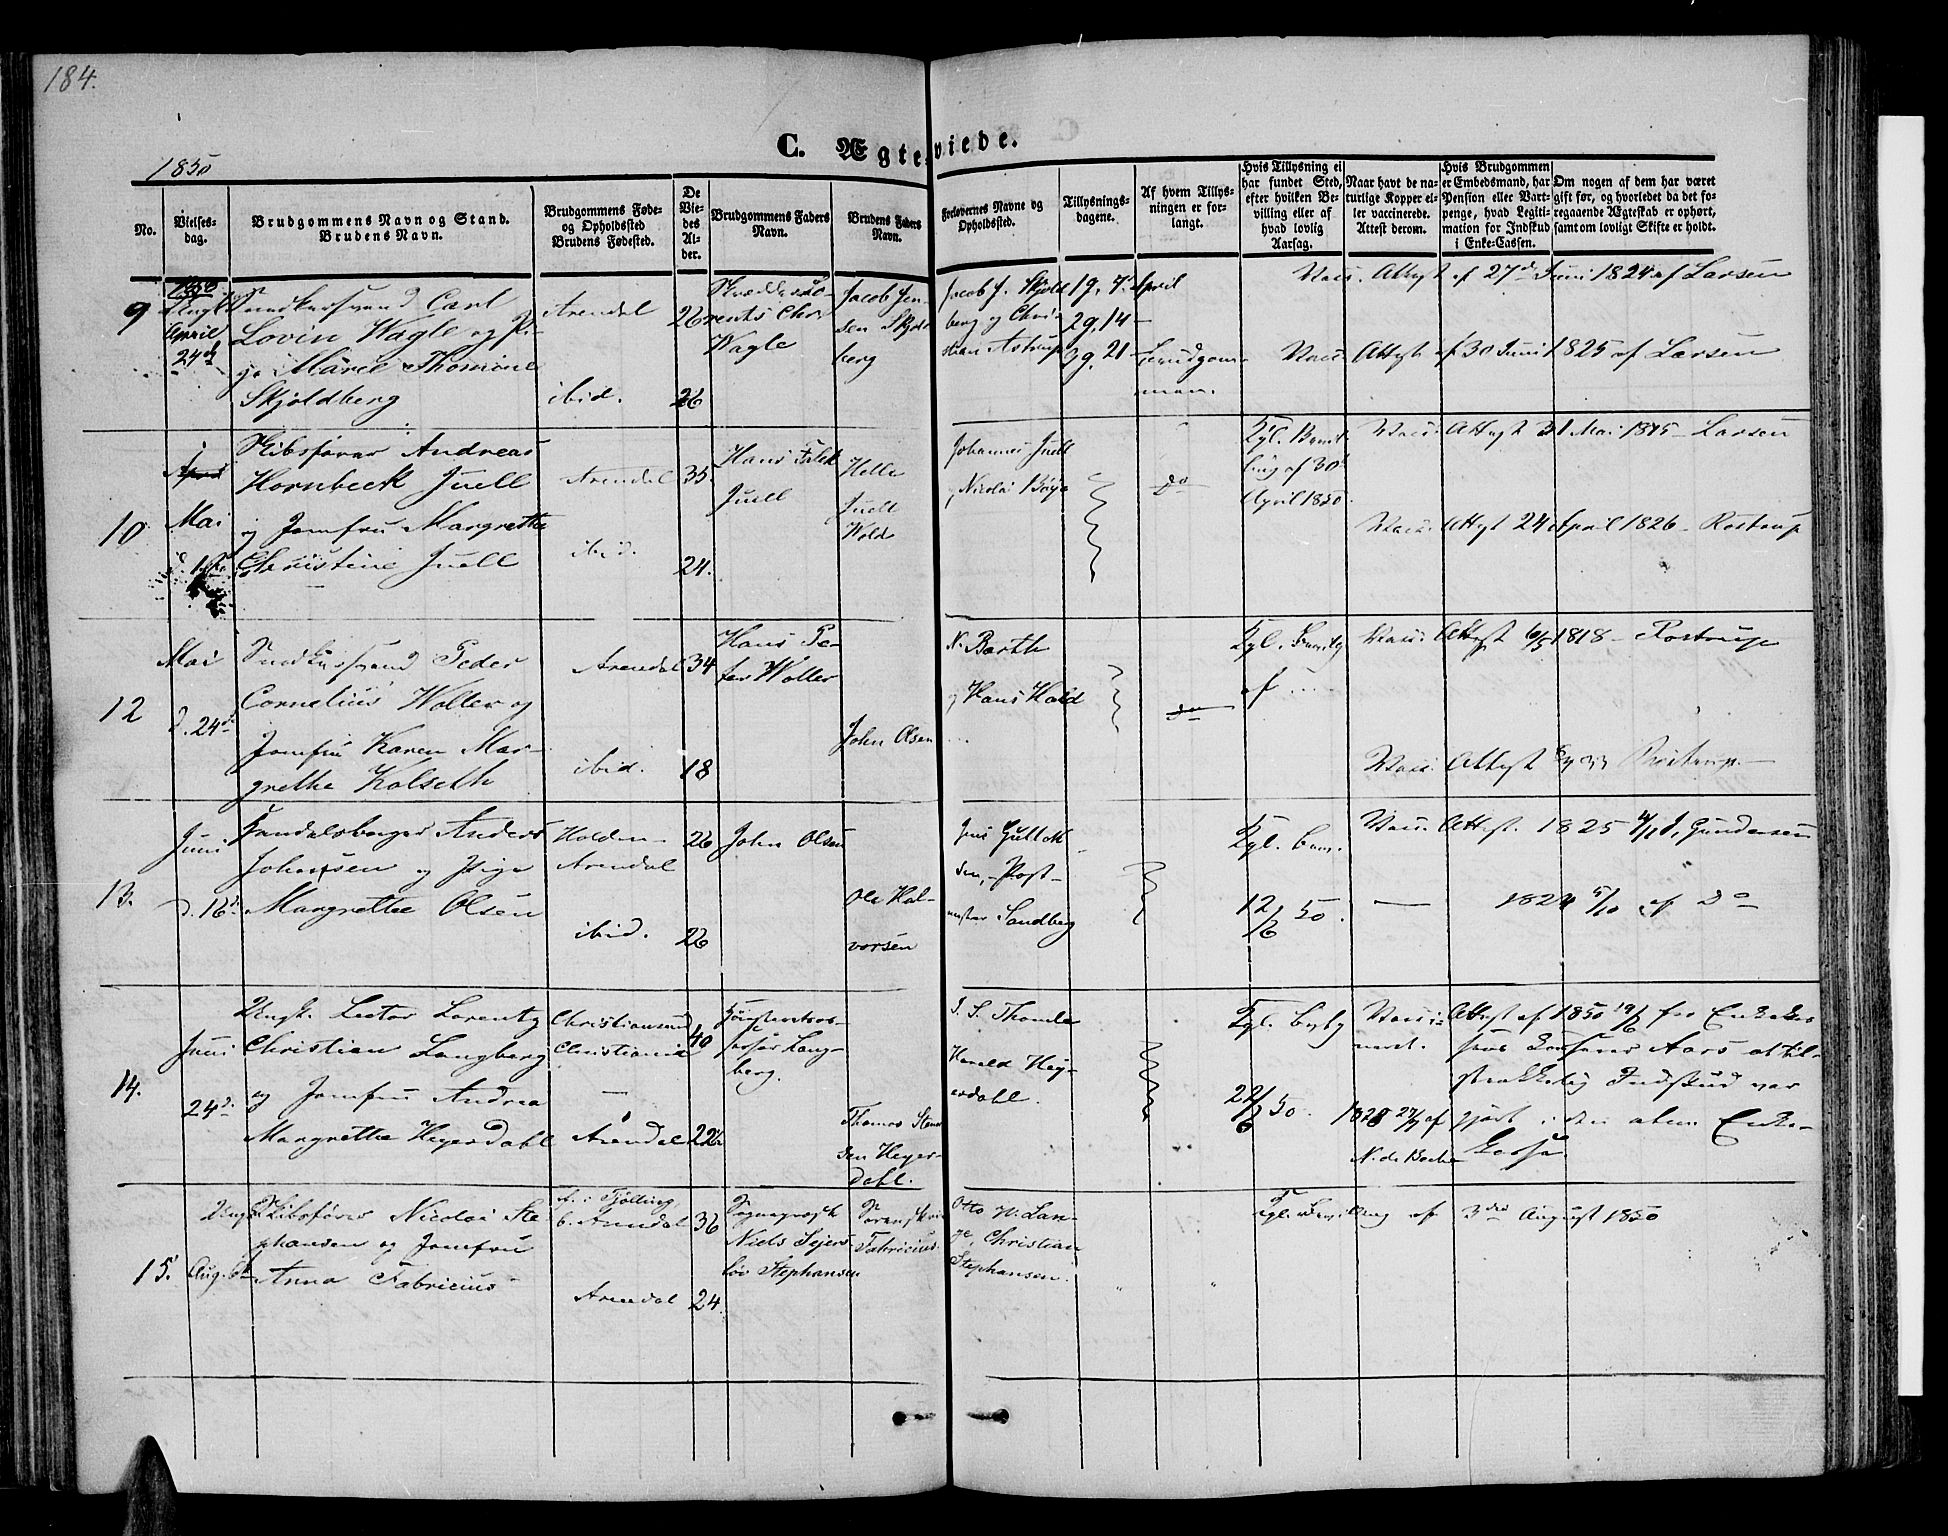 184.
C. Ægteviede.
1850
No.
Vielses-
dag.
Brudgommens Navn og Stand.
Brudens Navn.
Brudgommens Føde-
og Opholdssted
Brudens Fødested.
De
Vie-
des
Al-
der.
Brudgommens Faders
Navn.
Brudens Faders
Navn.
Forlovernes Navne og
Opholdsted.
Tillysnings-
dagene.
Af hvem Tillys-
ningen er for-
langt.
Hvis Tillysning ei
har fundet Sted,
efter hvilken Be-
villing eller af
hvad lovlig
Aarsag.
Naar havt de na-
turlige Kopper el-
ler vaccinerede.
Attest derom.
Hvis Brudgommen
er Embedsmand, har
Pension eller Vart-
penge, hvad Legiti-
mation for Indskud
i Enke-Cassen.
Om nogen af dem har været
gift før, og hvorledet da det fo-
regaaende Ægteskab er ophørt,
samt om lovligt Skifte er holdt.
9
1850
April
24d
Carl
Lovin Wagle og Pi-
ge Maren Thomine
Skjoldberg
Arendal
ibid.
26
26
Wagle
Jacob Jen-
sen Skjold
berg
Jacob J. Skjold
berg og Chri-
stian Astrup
19, 7 April
29, 14 —
39, 21 —
Brudgom-
men.
Vacc. Attest af 27d Juni 1824 af Larsen
Vacc. Attest af 30 Juni 1825 af Larsen
10
Mai
Skibsfører Andreas
Hornbeck Juell
og Jomfru Margrethe
Christine Juell
Arendal
ibid.
35
24.
Hans Falck
Juell
Helle
Juell
Wold
Johannes Juell
og Nicolai Bøye
do
Kgl. Bevil-
ling af 30d
April 1850.
Vacc. Attest 31 Mai 1815 — Larsen
Vacc. Attest 24 April 1826 — Rostrup
12
Mai
d. 24d
Peder
Cornelius Woller og
Jomfru Karen Mar-
grethe Kolseth
Arendal
ibid.
34
18
Hans Pe-
ter Woller
John Olsen
N. Barth
og Hans Hald
do
Kgl. Bevilg
af ....
Vacc. Attest 6/5 1818 — Rostrup
Vacc. Attest Rostrup —
13.
Juni
d. 16d
Anders
Johansen og Pige
Margrethe Olsen
Holden —
Arendal
ibid.
26
26
John Olsen
Ole Hal-
vorsen
Jens
— Post-
mester Sandberg
Kgl. Bev.
12/6 50.
Vacc. Attest. 1825 Gundersen
— 5/10 af Do
14.
Juni
24d
Ungk. Lector Lorentz
Christian Langberg
og Jomfru Andrea
Margrethe Heyerdahl
Christiansund
Christiania
—
Arendal
40
22
Lang-
berg.
Thomas Sten-
sen Heyer-
dahl.
Thomle
Harald Hey-
erdahl.
Kgl. Bevlg
22/6 50.
Vacci-
neret.
1828 27/7 af
N. de Boche
Attest af 1850 19/6 for Enkekas
sens Aars at til-
strækkelig Indskud var
gjort i den alm Enke-
Casse
15.
Aug. 6te
Ungk. Skibsfører Nicolai Ste
phansen og Jomfru
Anna Fabricius
f. i Tjølling,
b. Arendal
Arendal
36
24.
Sogneprest
Niels Sejers-
löv Stephansen
Sorenskriv.
Fabricius.
Otto H. Lan-
ge, Christian
Stephansen.
Kgl. Bevilling af 3die August 1850